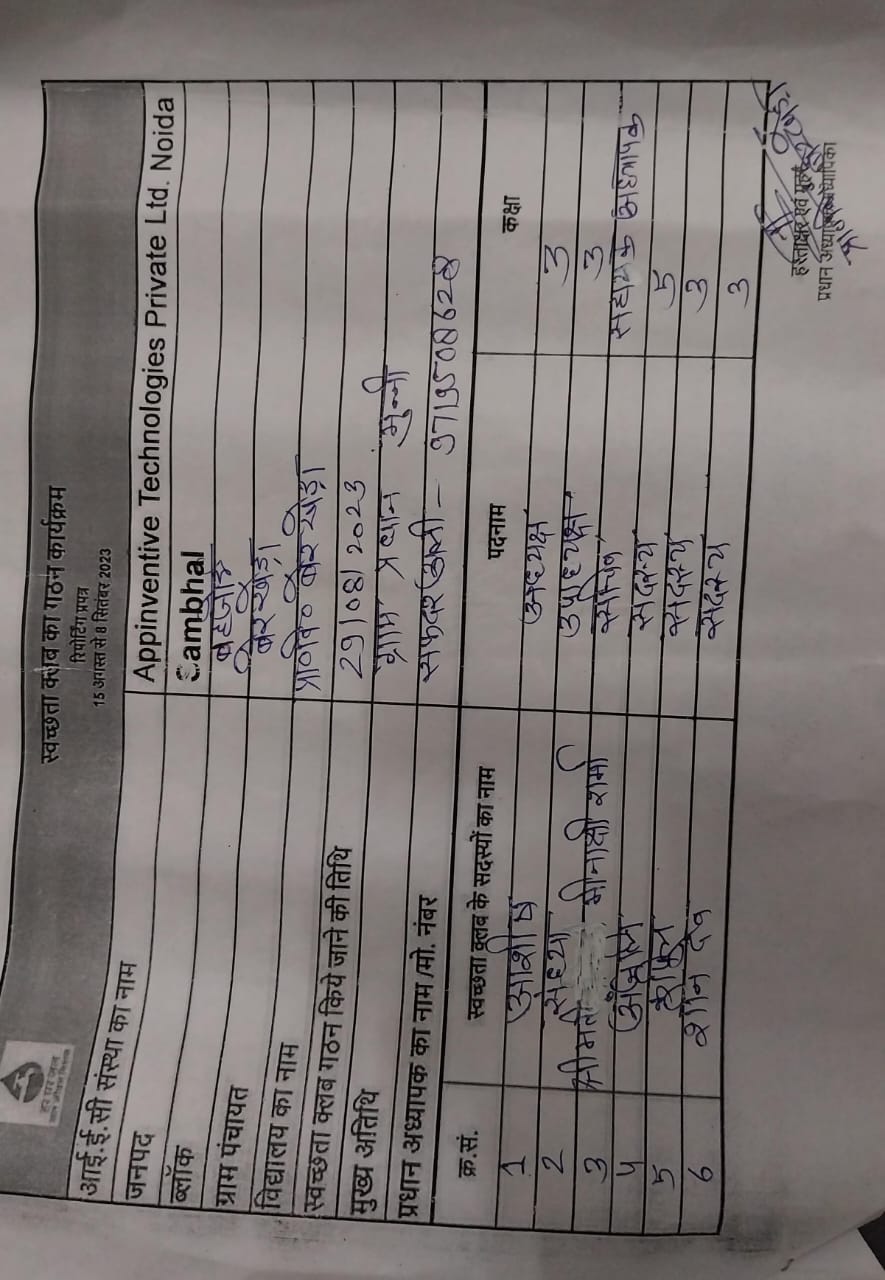 हर घर जल
स्वच्छता क्लब का गठन कार्यक्रम
रिपोर्टिंग प्रपत्र
15 अगस्त से 8 सितंबर 2023
आई.ई.सी संस्था का नाम Appinventive Technologies Private Ltd. Noida
जनपद Sambhal
ब्लॉक बहजोई
ग्राम पंचायत बेरखेड़ा
विद्यालय का नाम प्रा०वि० बेरखेड़ा
स्वच्छता क्लब गठन किये जाने की तिथि 29/08/2023
मुख्य अतिथि ग्राम प्रधान मुन्नी
प्रधान अध्यापक का नाम /मो. नंबर सफदर अली - 9719508628
क्र.सं. स्वच्छता क्लब के सदस्यों का नाम पदनाम कक्षा
1 आशीष अध्यक्ष 3
2 संध्या उपाध्यक्ष 3
3 श्रीमती मीनाक्षी शर्मा सचिव सहायक अध्यापक
4 सदस्य 5
5 सदस्य 3
6 सदस्य 3
हस्ताक्षर एवं मुहर
प्रधान अध्यापक/अध्यापिका